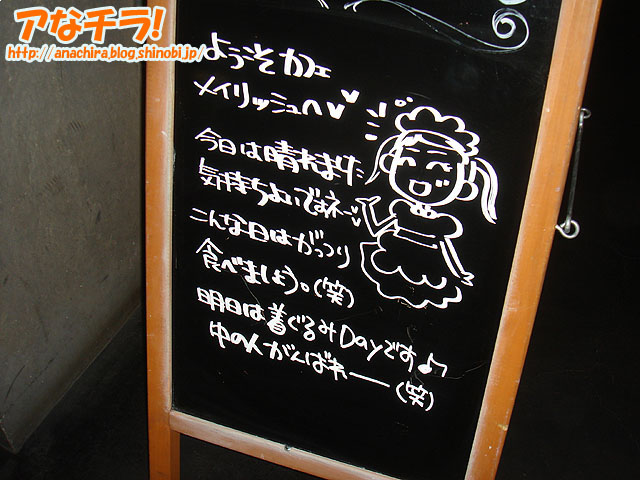 アなチラ!
http://anachira.blog.shinobi.jp/
ようこそカフェ
メイリッシュへ♥♥
今日は晴れました
気持ちよいですネー♥♥
こんな日はがっつり
食べましょう。(笑)
明日は着ぐるみDayです♪
中の人がんばれー(笑)